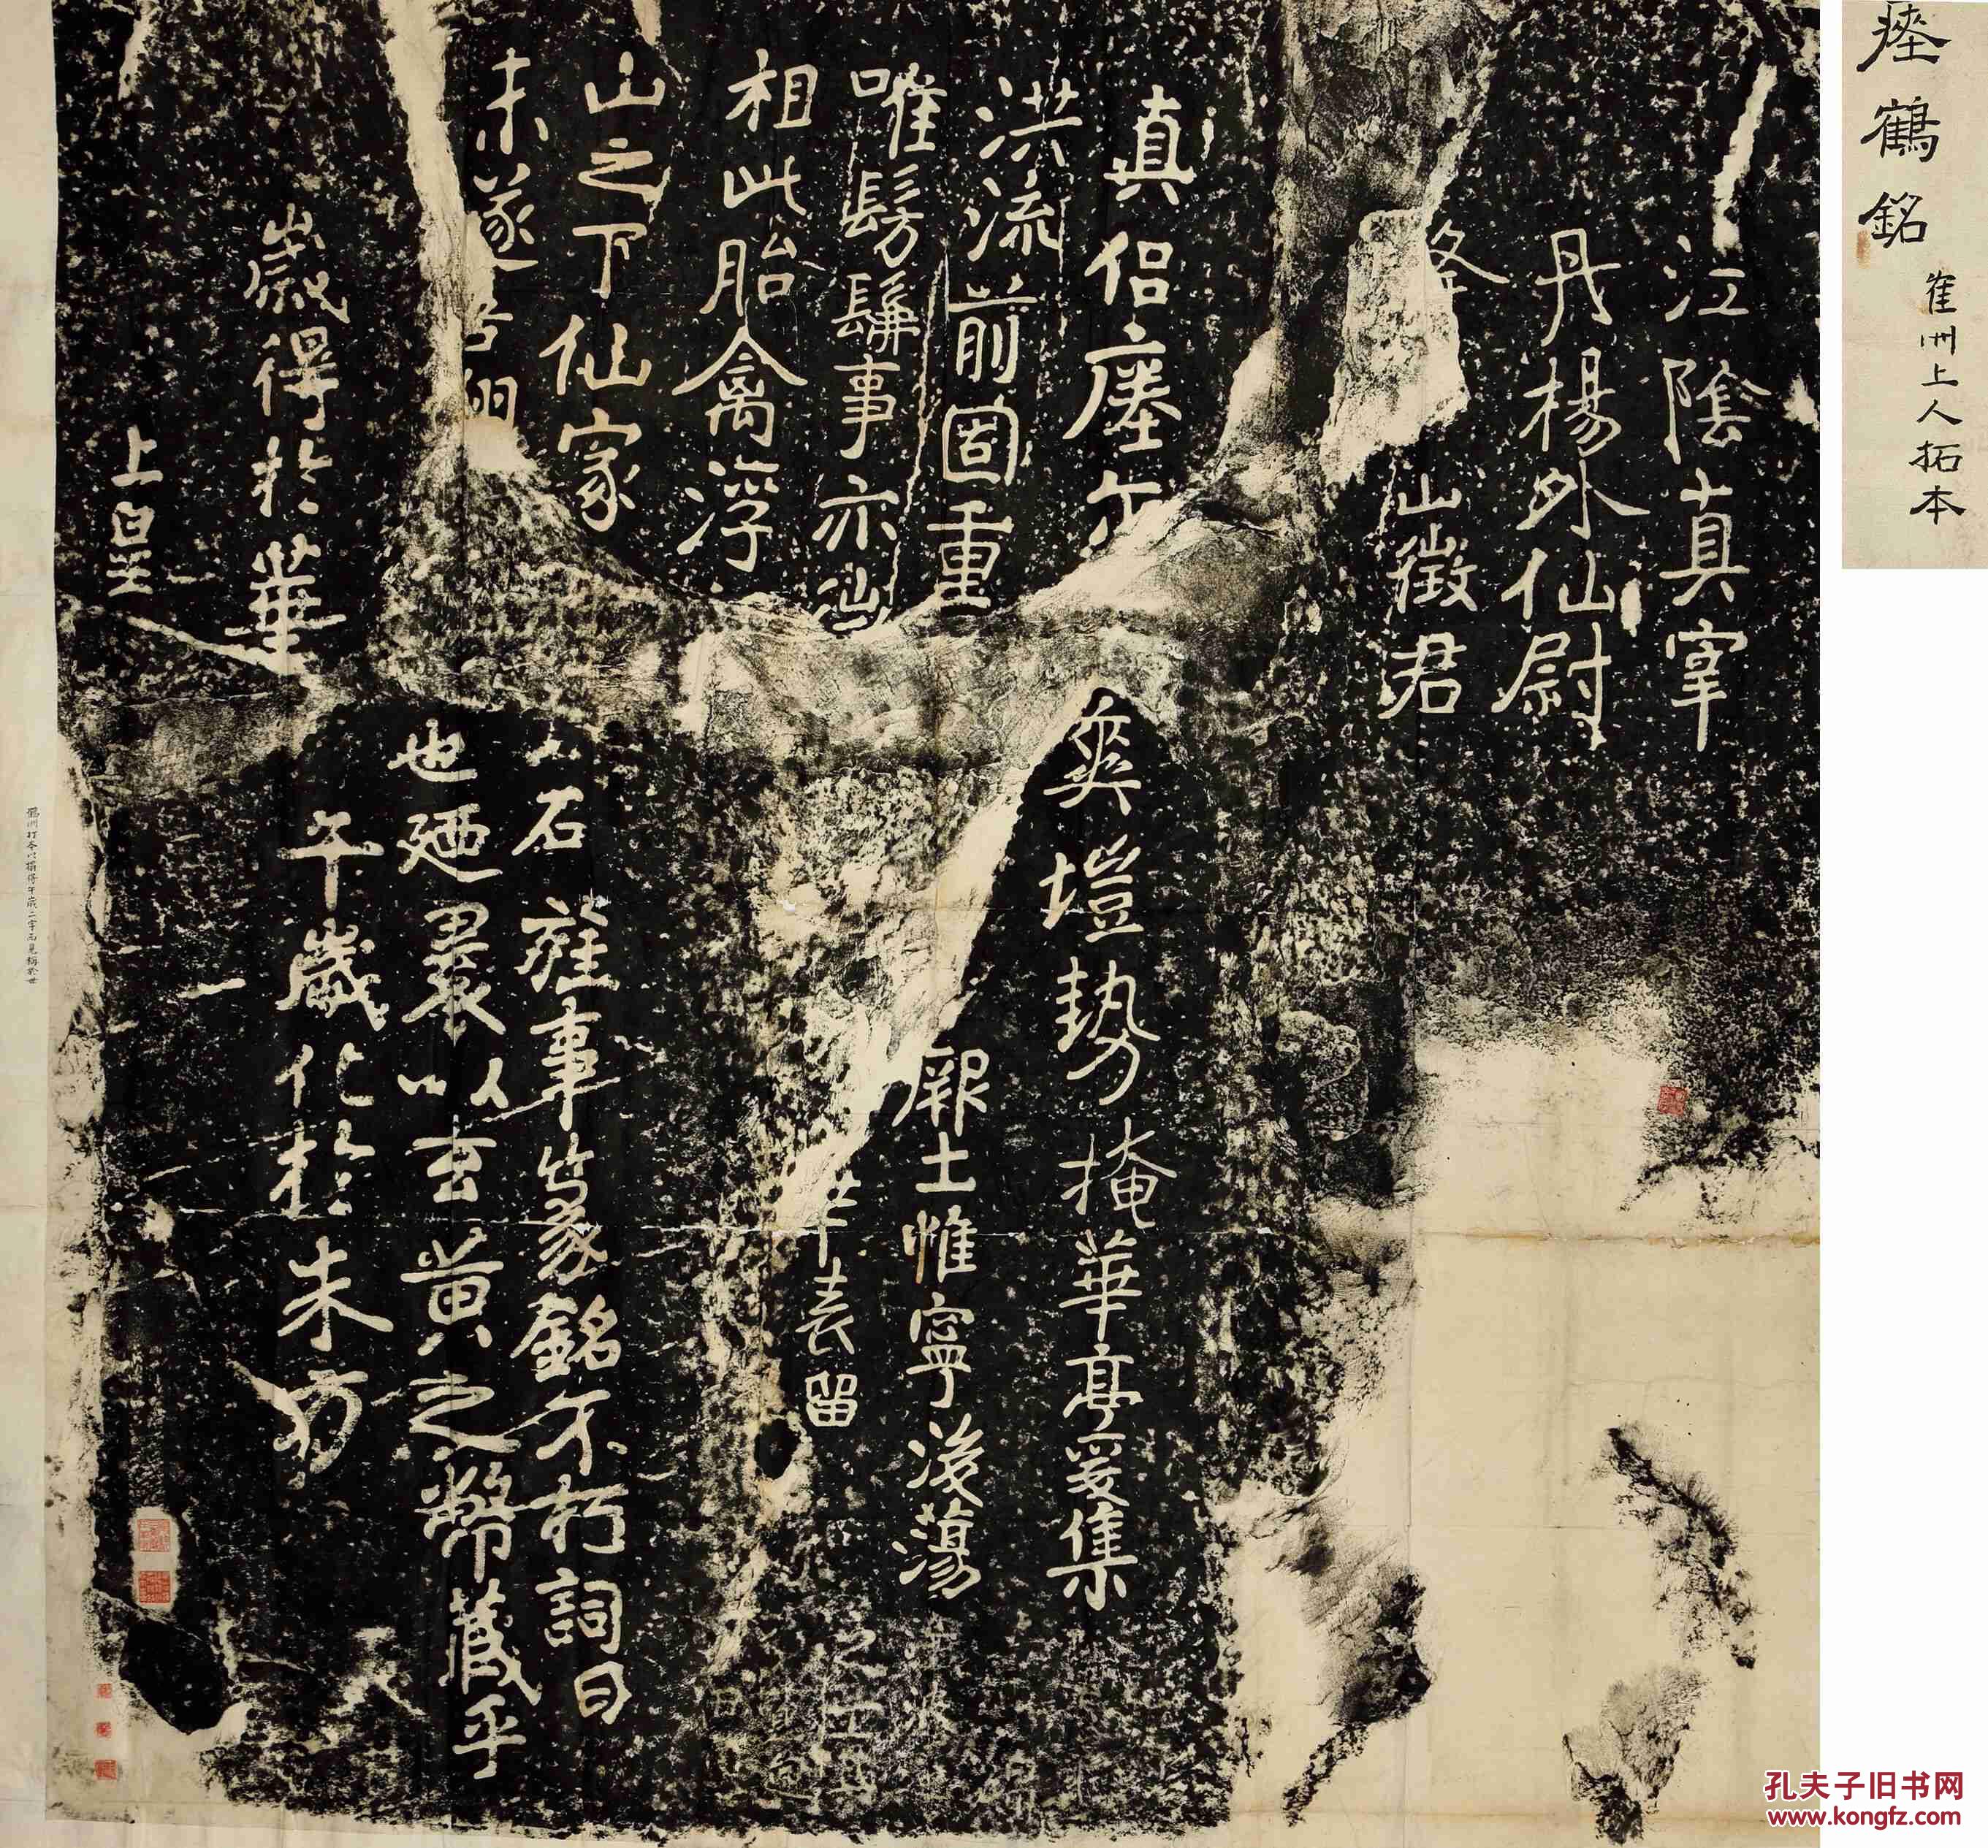 瘞鶴銘
萑洲上人拓本
江陰真宰
丹楊外仙尉
夅山徵君
真侶瘞尒
洪流前固重
唯髣髴事亦仙
相此胎禽浮
山之下仙家
未遂吾翔
歲得於華
上皇
爽塏勢掩華亭爰集
厥土惟寧後蕩
華表留
石旌事篆銘不朽詞曰
也迺裹以玄黃之幣藏乎
午歲化於朱方
鶴洲打本以搨得午歲二字而見稱於世
孔夫子旧书网
www.kongfz.com